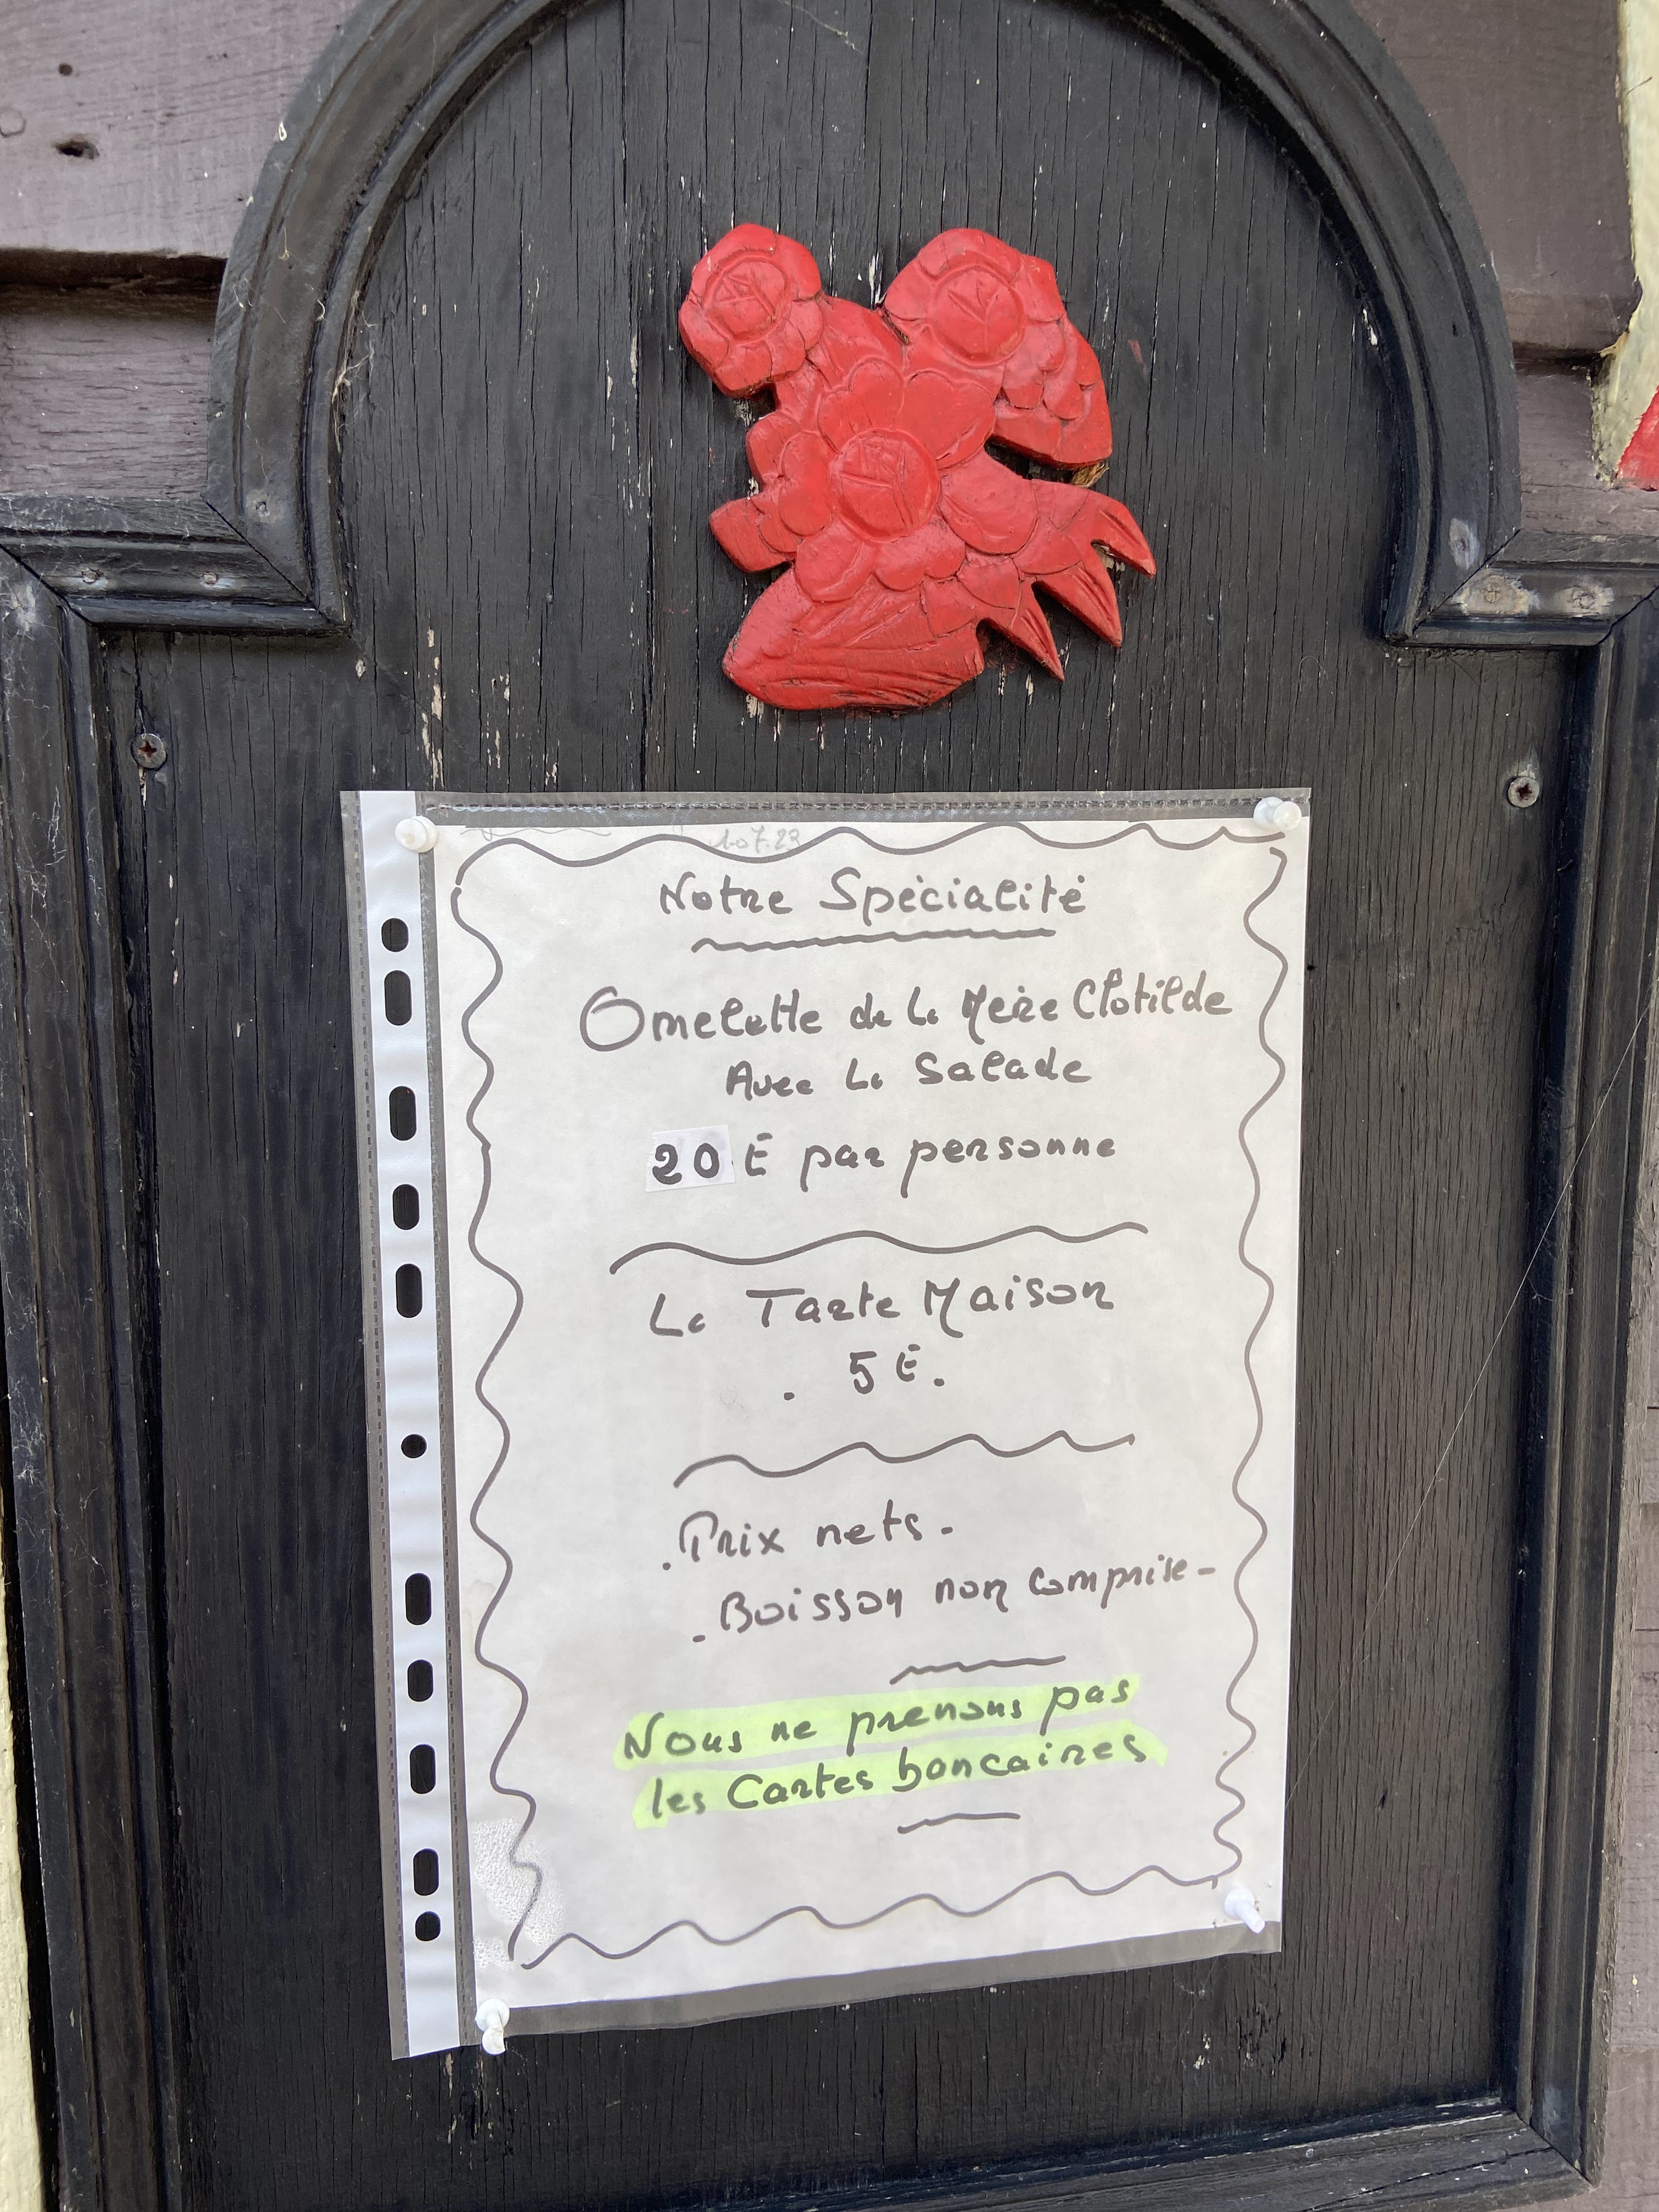 Notre Spécialité
Omelette de la Mère Clotilde
Avec la Salade
20 € par personne
La Tarte Maison
. 5 €.
. Prix nets.
. Boisson non comprise-
Nous ne prenons pas
les Cartes boncaires